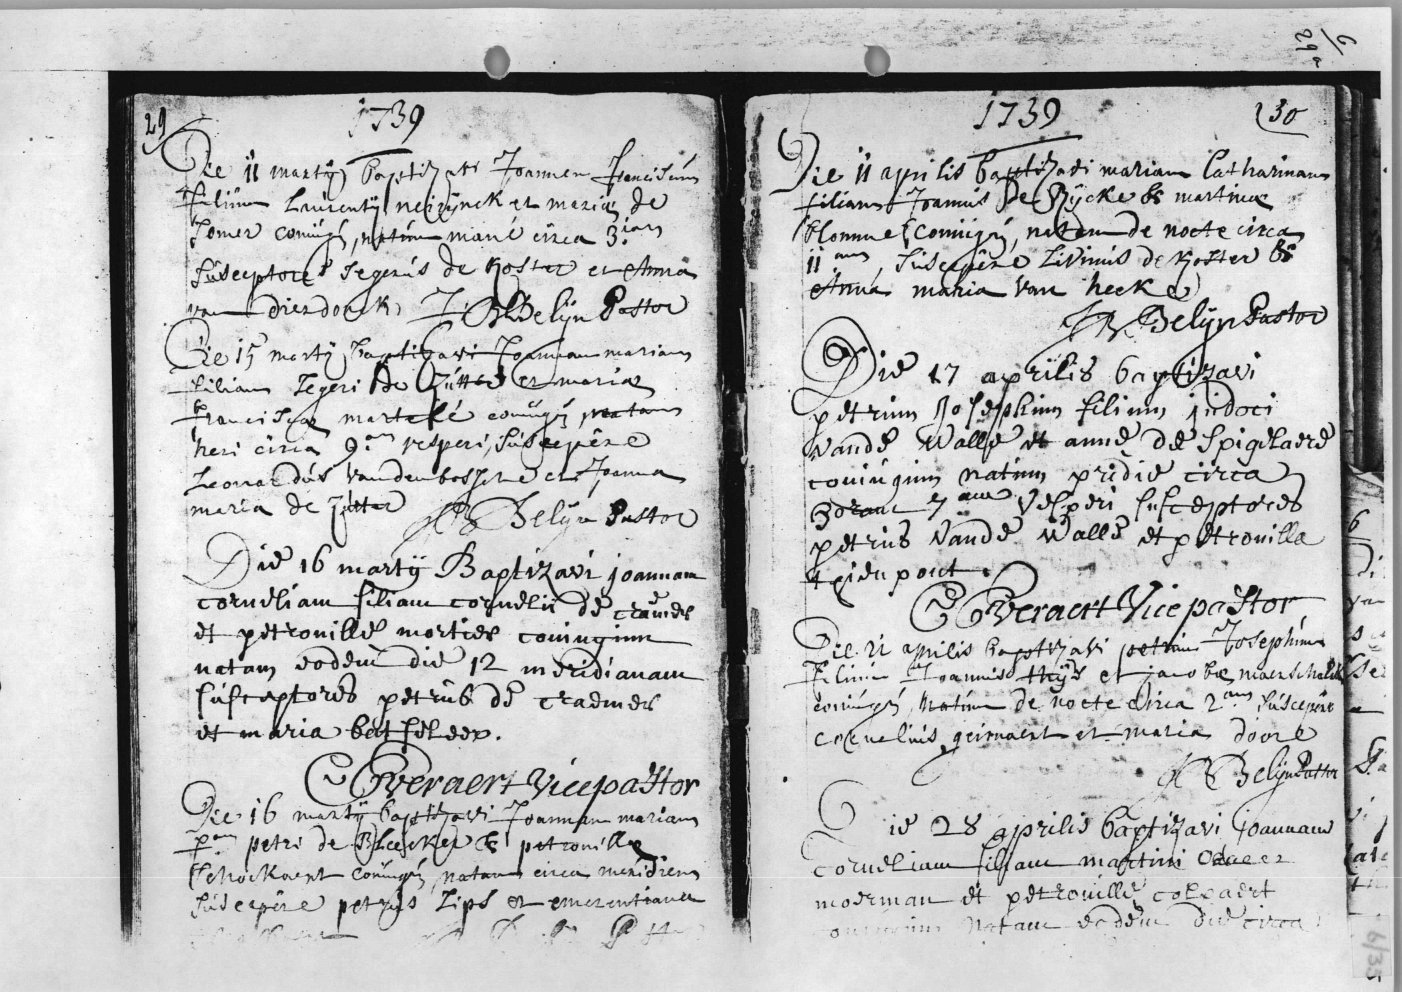 29
1739
Die 11 martij baptizavi Joannem Franciscum
filium Laurentij neirynck et mariæ de
Somer coniugū, natum mané circa 3.iam
Susceptores Segerus de Koster et Anna
van dierdonck, J: B Belijn Pastor
Die 15 martij baptizavi Joannam mariam
filiam Segeri De Zutter et mariæ
Franciscæ martelé coniugū natam
heri circa 9.am vesperi, suscepére
Leonardus vandenbossche et Joanna
maria de Zutter J B Belijn Pastor
Die 16 martij Baptizavi joannam
corneliam filiam cornelii de craemer
et petronille mortier coniugum
natam eodem die 12 meridianam
susceptores petrus de craemer
et maria
C Everaert Vice pastor
Die 16 martij baptizavi Joannam mariam
petri de Bleecker & petronillæ
Schockaert coniugū, natam circa meridiem
Suscepére petrus Lips et emerentiana
1739
30
Die 11 aprilis baptizavi mariam Catharinam
filiam Joannis De Rycke & martinæ
blomme coniugū, natam de nocte circa
11 am Suscepére Livinus de Koster &
Anna maria Van hecke
J B Belijn Pastor
Die 17 aprilis baptizavi
petrum Josephum filium judoci
Vande Walle et anne de Spigelaere
coniugum natum pridie circa
7 am Vesperi susceptores
petrus Vande Walle et petronilla
C Everaert Vice pastor
Die 21 aprilis baptizavi petrum Josephum
filium Joannis thijs et jacobæ maerschalck
coniugū, natum de nocte circa 2 am suscepére
cornelius geirnaert et maria
J B Belijn Pastor
Die 28 aprilis baptizavi joannam
corneliam filiam martini
moerman et petronille
coniugum natam eodem die circa
6/33